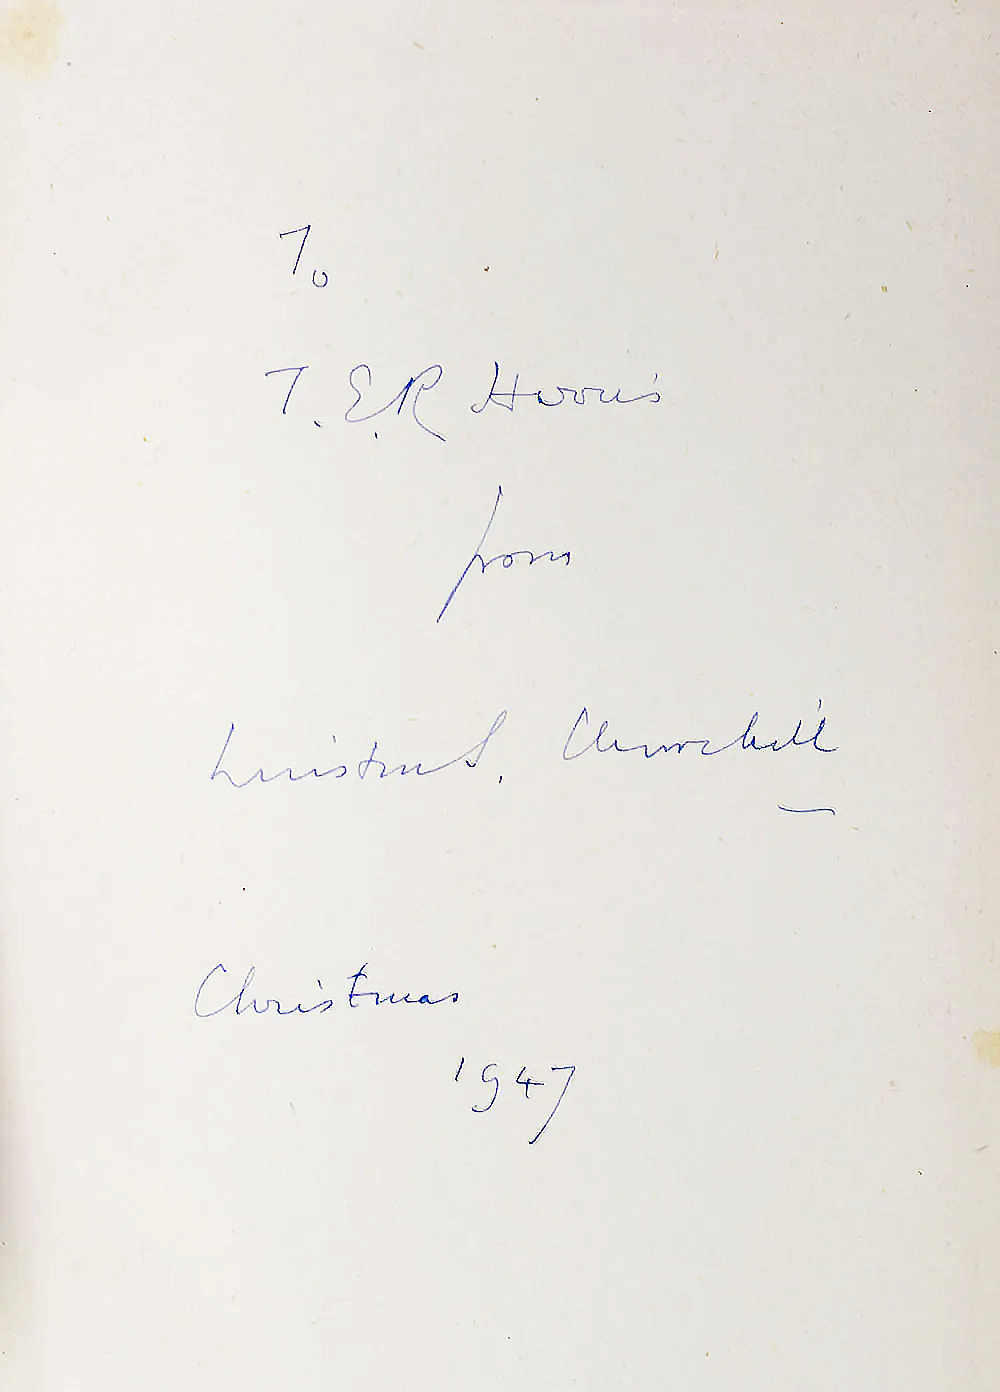 To
T. E.R Harris
from
Winston S. Churchill
Christmas
1947